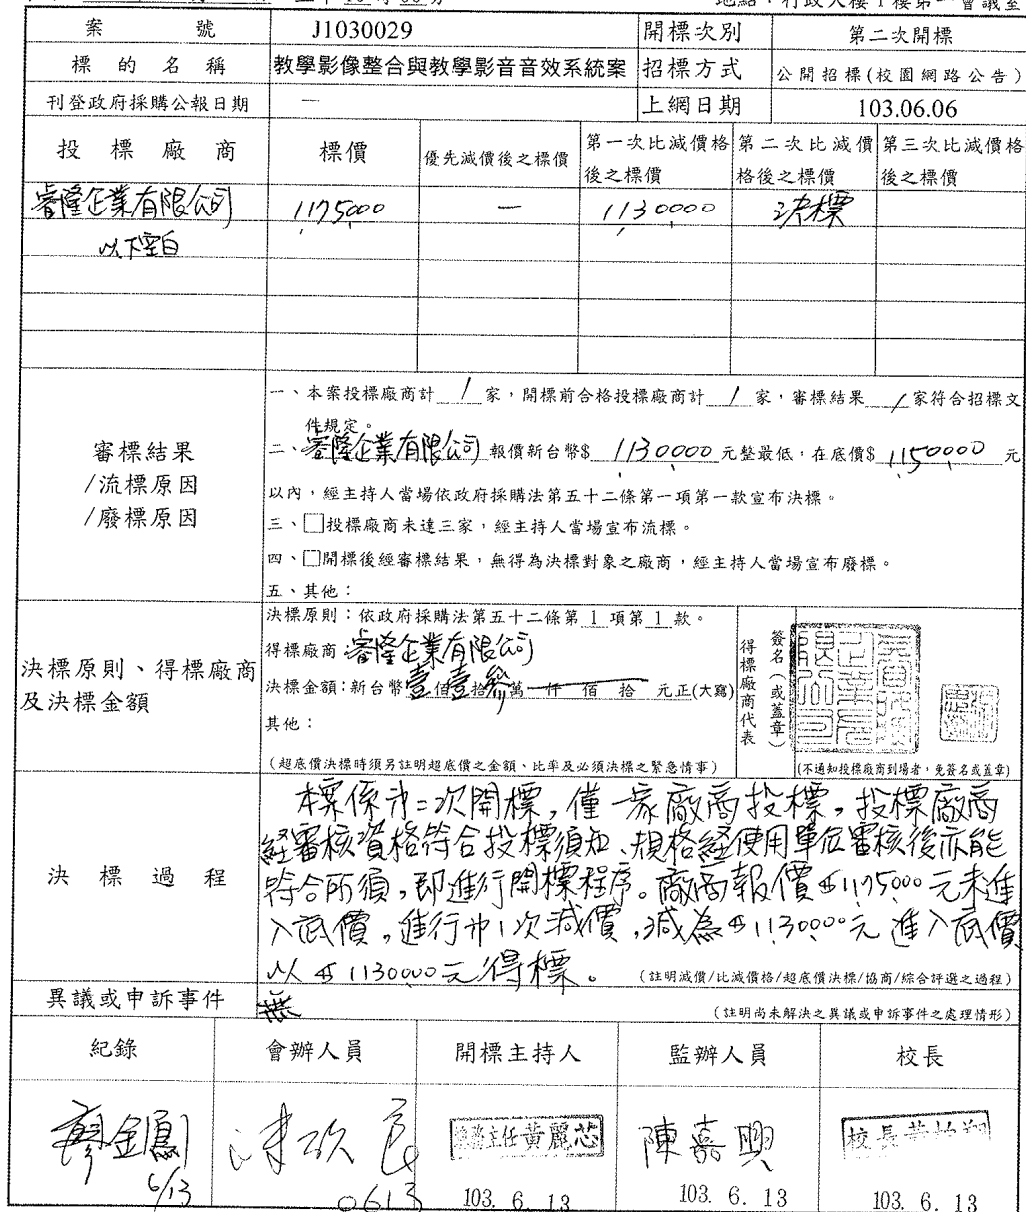 地點：行政大樓1樓第一會議室
案號 J1030029 開標次別 第二次開標
標的名稱 教學影像整合與教學影音音效系統案 招標方式 公開招標(校園網路公告)
刊登政府採購公報日期 — 上網日期 103.06.06
投標廠商 標價 優先減價後之標價 第一次比減價格後之標價 第二次比減價格後之標價 第三次比減價格後之標價
睿隆企業有限公司 1175000 — 1130000 決標
以下空白
審標結果
/流標原因
/廢標原因
一、本案投標廠商計 1 家，開標前合格投標廠商計 1 家，審標結果 1 家符合招標文
件規定。
二、睿隆企業有限公司 報價新台幣$ 1130000 元整最低，在底價$ 1150000 元
以內，經主持人當場依政府採購法第五十二條第一項第一款宣布決標。
三、□投標廠商未達三家，經主持人當場宣布流標。
四、□開標後經審標結果，無得為決標對象之廠商，經主持人當場宣布廢標。
五、其他：
決標原則、得標廠商
及決標金額
決標原則：依政府採購法第五十二條第 1 項第 1 款。
得標廠商：睿隆企業有限公司
決標金額：新台幣壹佰壹拾參萬 仟 佰 拾 元正(大寫)
其他：
(超底價決標時須另註明超底價之金額、比率及必須決標之緊急情事)
得標廠商代表
簽名(或蓋章)
(不通知投標廠商到場者，免簽名或蓋章)
決標過程
本案係第二次開標，僅一家廠商投標，投標廠商
經審核資格符合投標須知、規格經使用單位審核後亦能
符合所須，即進行開標程序。廠商報價$1175000元未進
入底價，進行第1次減價，減為$1130000元進入底價
以$1130000元得標。
(註明減價/比減價格/超底價決標/協商/綜合評選之過程)
異議或申訴事件 無 (註明尚未解決之異議或申訴事件之處理情形)
紀錄 會辦人員 開標主持人 監辦人員 校長
廖金鳳 主任黃麗芯 陳嘉興 校長
6/13 0613 103. 6. 13 103. 6. 13 103. 6. 13